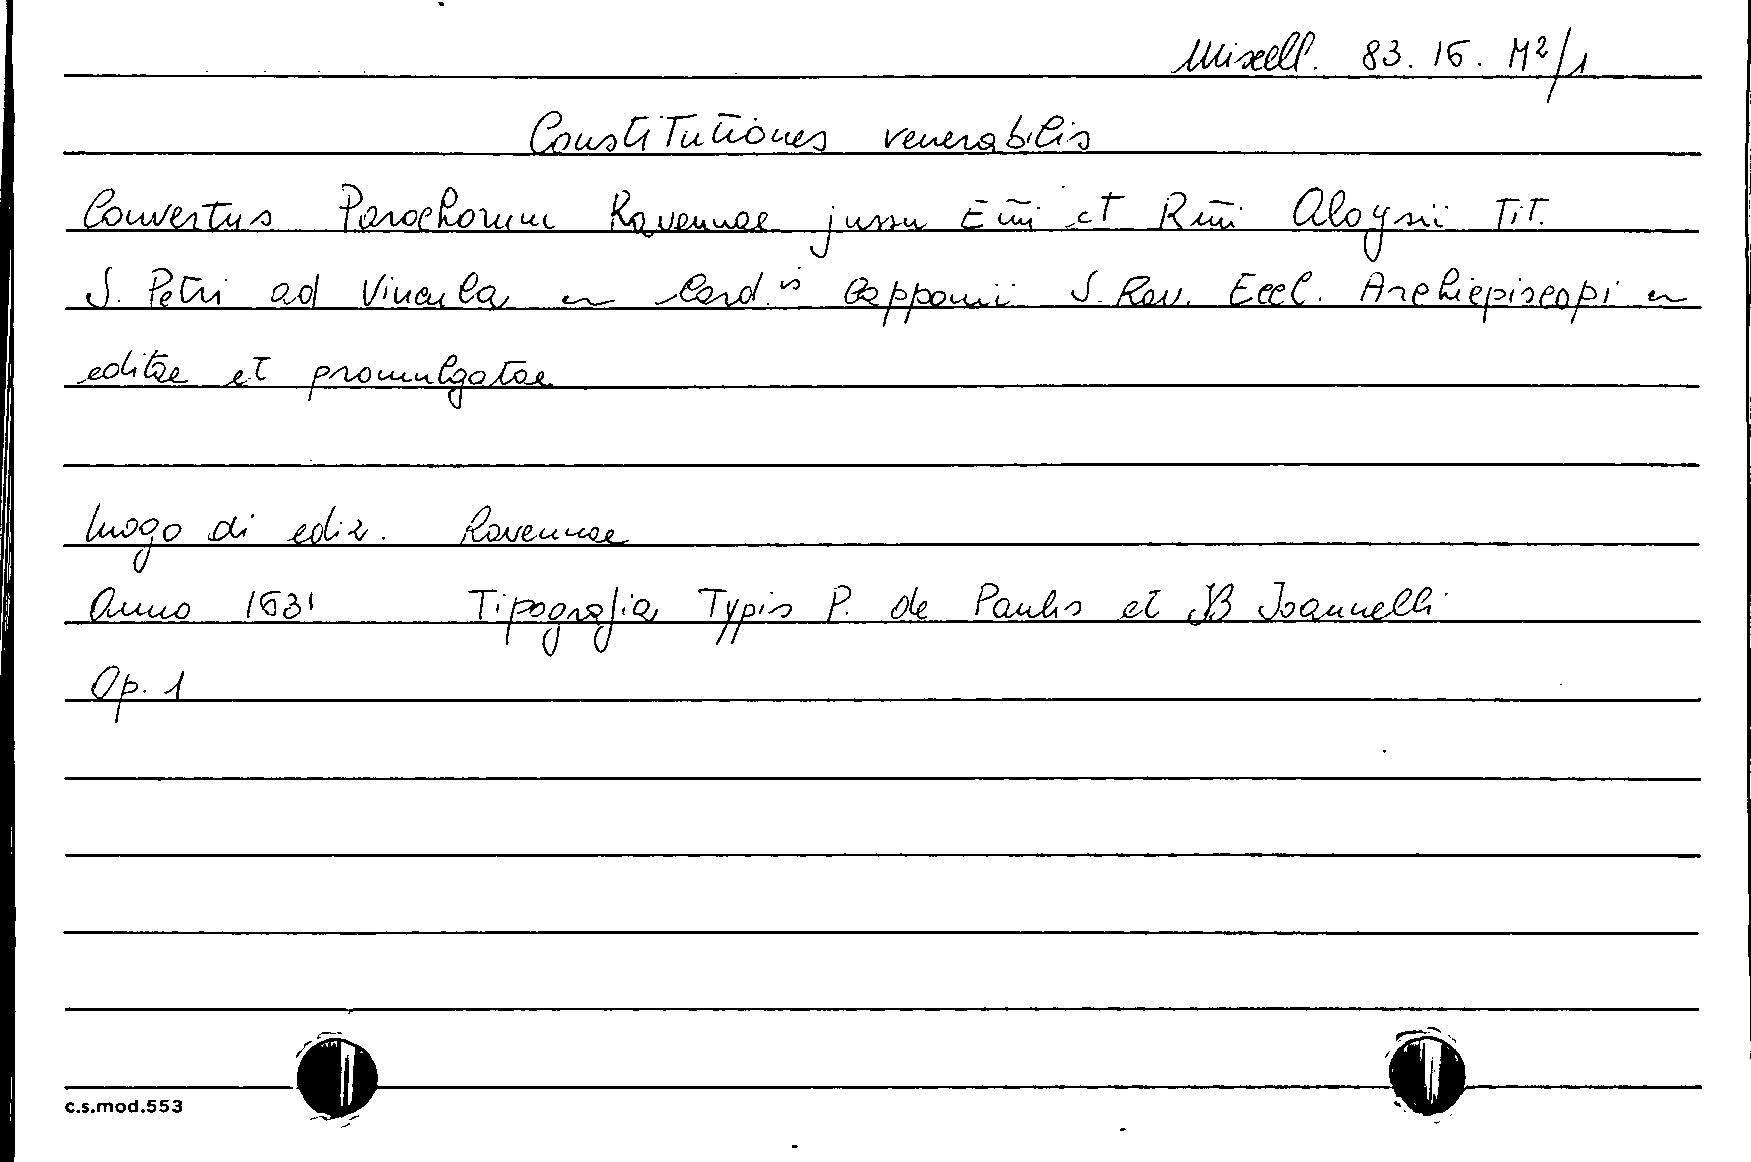 Miscell. 83. 15. M²/1
Constitutiones venerabilis
Conventus Parochorum Ravennae jussu Em̄i et Rm̄i Aloysii Tit.
S. Petri ad Vincula ~ Card.is Capponii S. Rav. Eccl. Archiepiscopi ~
editae et promulgatae
luogo di ediz. Ravennae
Anno 1631 Tipografia Typis P. de Paulis et JB Joannelli
Op. 1
c.s.mod.553